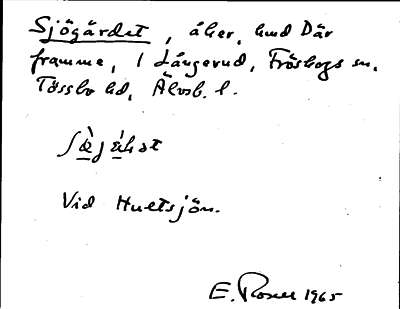 Sjögärdet, åker, hmd Där
framme, 1 Långerud, Fröskogs sn.
Tössbo hd, Älvsb. l.
Vid Hultsjön.
E. Rosell 1965